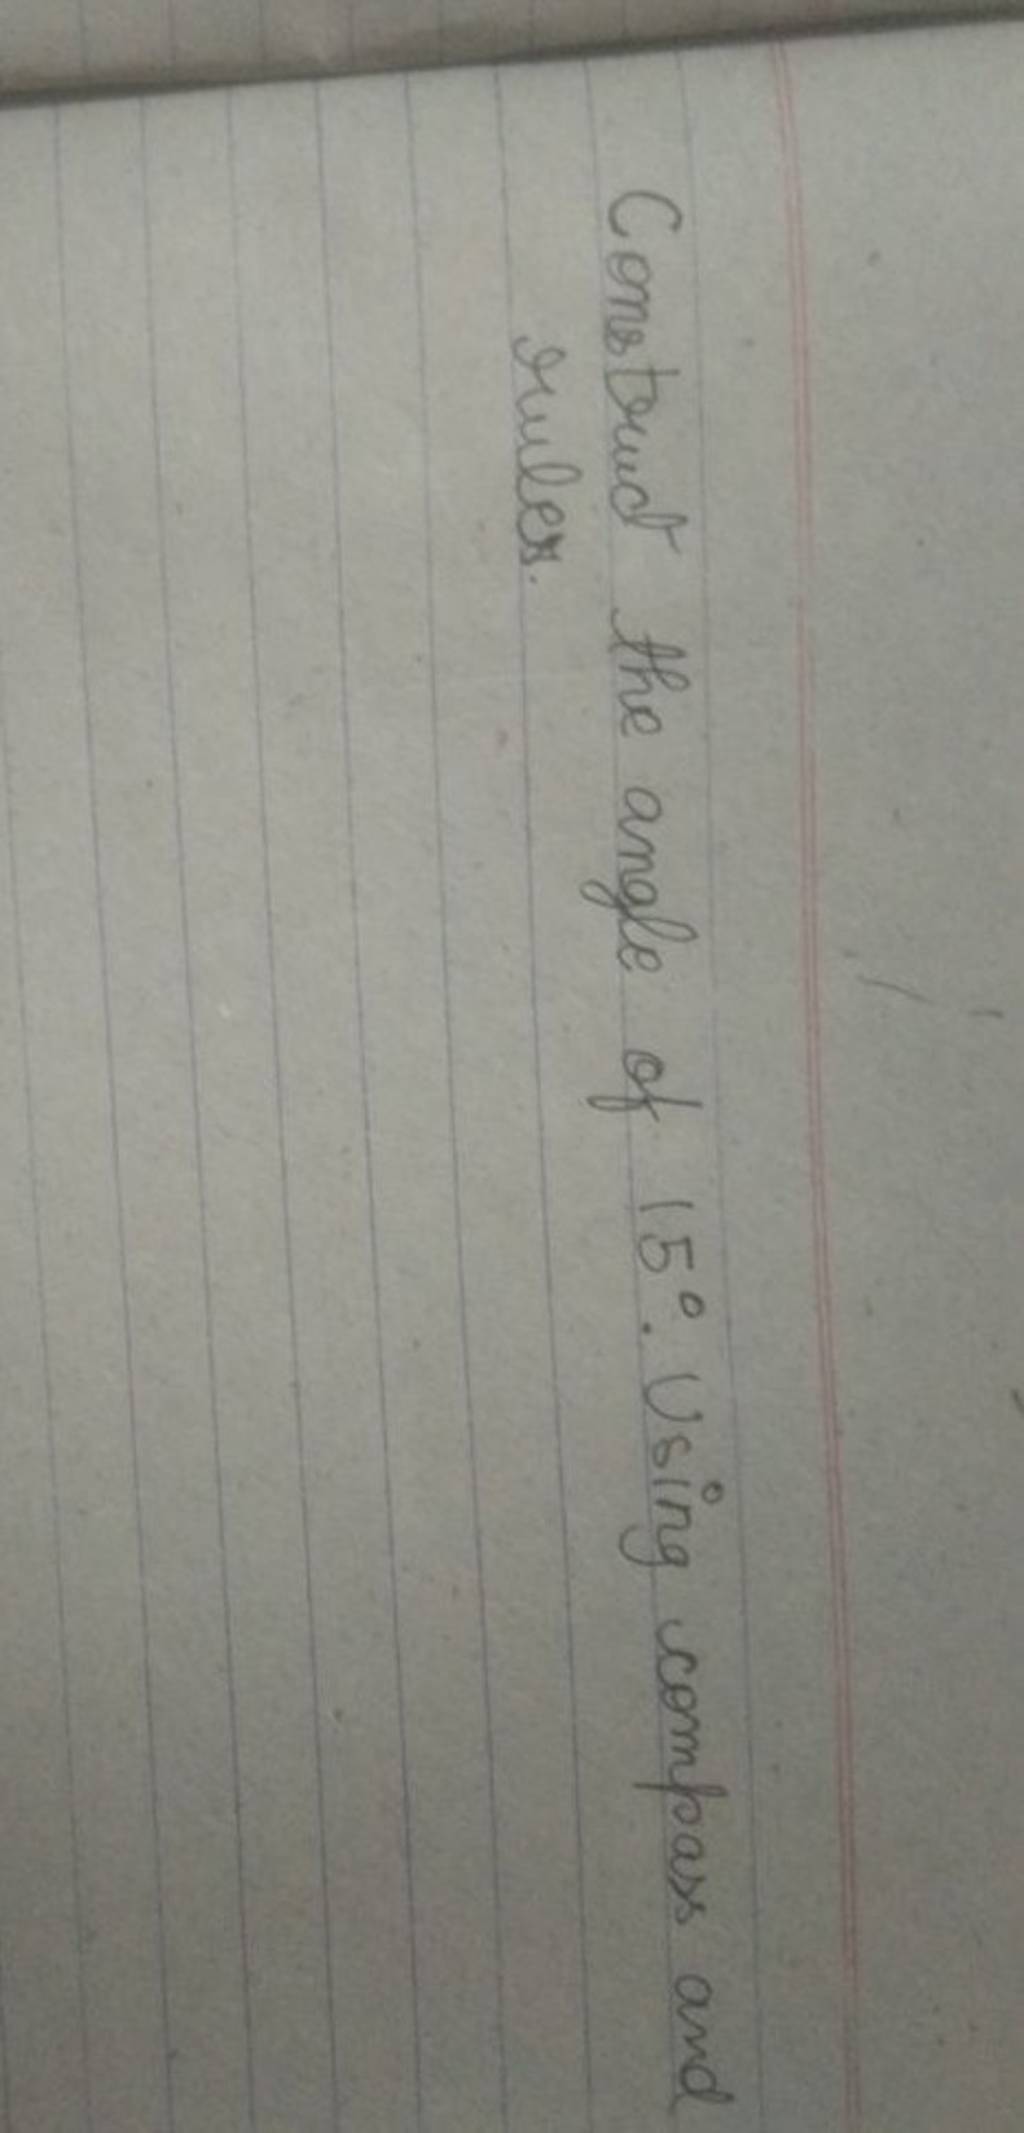 Construct the angle of 15°. Using compass and
ruler.